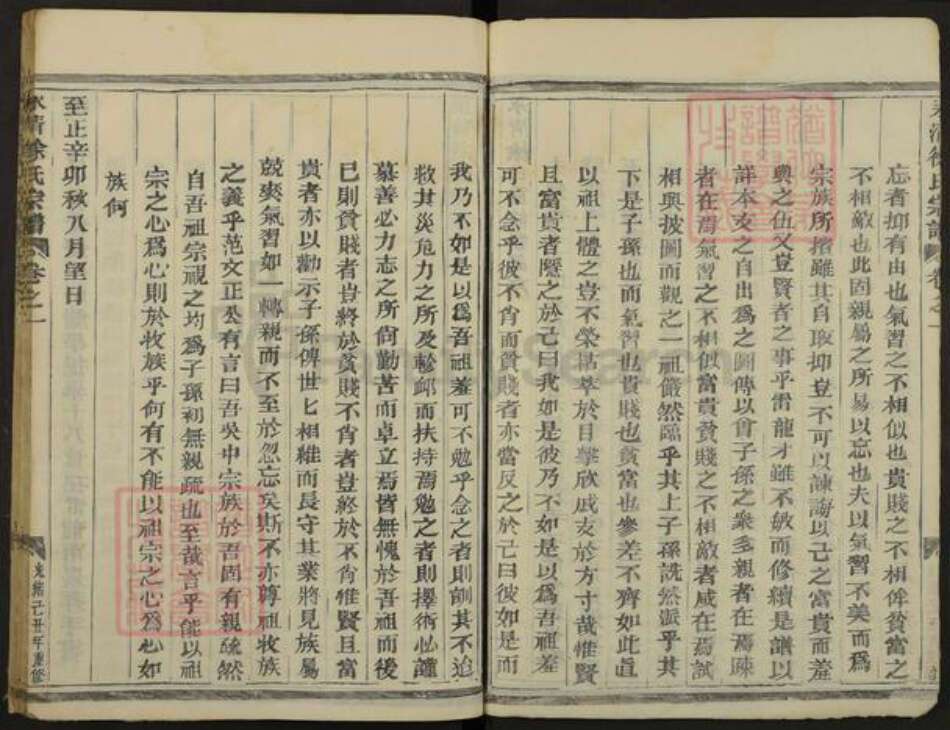 忘者抑有由也氣習之不相似也貴賤之不相侔貧富之
不相敵也此固親屬之所易以忘也夫以氣習不美而爲
宗族所擯雖其自取抑豈不可以諫誨以己之富貴而羞
與之伍又豈賢者之事乎雷龍才雖不敏而修續是譜以
詳本支之自出爲之圖傳以會子孫之衆多親者在焉疎
者在焉氣習之不相似富貴貧賤之不相敵者咸在焉試
相與披圖而觀之一祖儼然臨乎其上子孫詵然派乎其
下是子孫也而氣習也貴賤也貧富也參差不齊如此直
以祖上體之豈不榮枯萃於目擊欣戚交於方寸哉惟賢
且富貴者暨之於己曰我如是彼乃不如是以爲吾祖羞
可不念乎彼不肖而貧賤者亦當反之於己曰彼如是而
我乃不如是以爲吾祖羞可不勉乎念之者則訓其不迨
救其災危力之所及軫䘏而扶持焉勉之者則擇術必謹
慕善必力志之所尙勤苦而卓立焉皆無愧於吾祖而後
已則貧賤者豈終於貧賤不肖者豈終於不肖惟賢且富
貴者亦以勸示子孫俾世匕相維而長守其業將見族屬
兢爽氣習如一轉親而不至於忽忘矣斯不亦尊祖收族
之義乎范文正公有言曰吾吳中宗族於吾固有親疏然
自吾祖宗視之均爲子孫初無親疏也至哉言乎能以祖
宗之心爲心則於牧族乎何有不能以祖宗之心爲心如
族何
至正辛卯秋八月望日
永清徐氏宗譜 卷之一
光緒己丑年重修